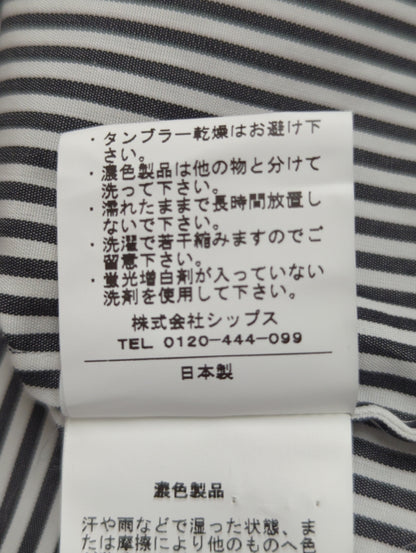 ・タンブラー乾燥はお避け下
さい。
・濃色製品は他の物と分けて
洗って下さい。
・濡れたままで長時間放置し
ないで下さい。
・洗濯で若干縮みますのでご
留意下さい。
・蛍光増白剤が入っていない
洗剤を使用して下さい。
株式会社シップス
TEL 0120-444-099
日本製
濃色製品
汗や雨などで湿った状態、ま
たは摩擦により他のものへ色